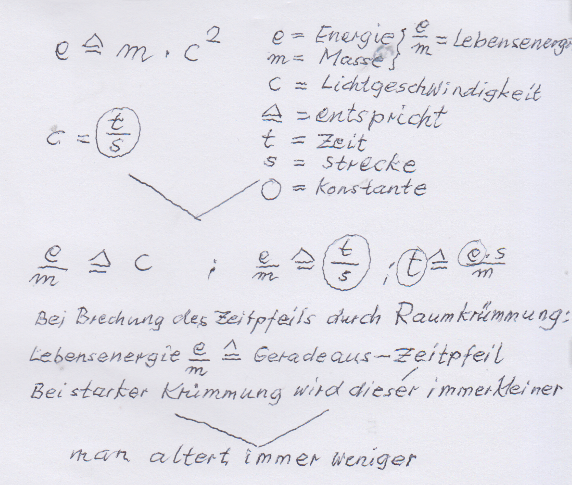 e ≙ m · c²
e = Energie } e/m = Lebensenergi
m = Masse }
c = Lichtgeschwindigkeit
≙ = entspricht
c = t/s
t = Zeit
s = Strecke
○ = Konstante
e/m ≙ c ; e/m ≙ t/s ; t ≙ e·s/m
Bei Brechung des Zeitpfeils durch Raumkrümmung:
Lebensenergie e/m ≙ Geradeaus-Zeitpfeil
Bei starker Krümmung wird dieser immer kleiner
man altert immer weniger